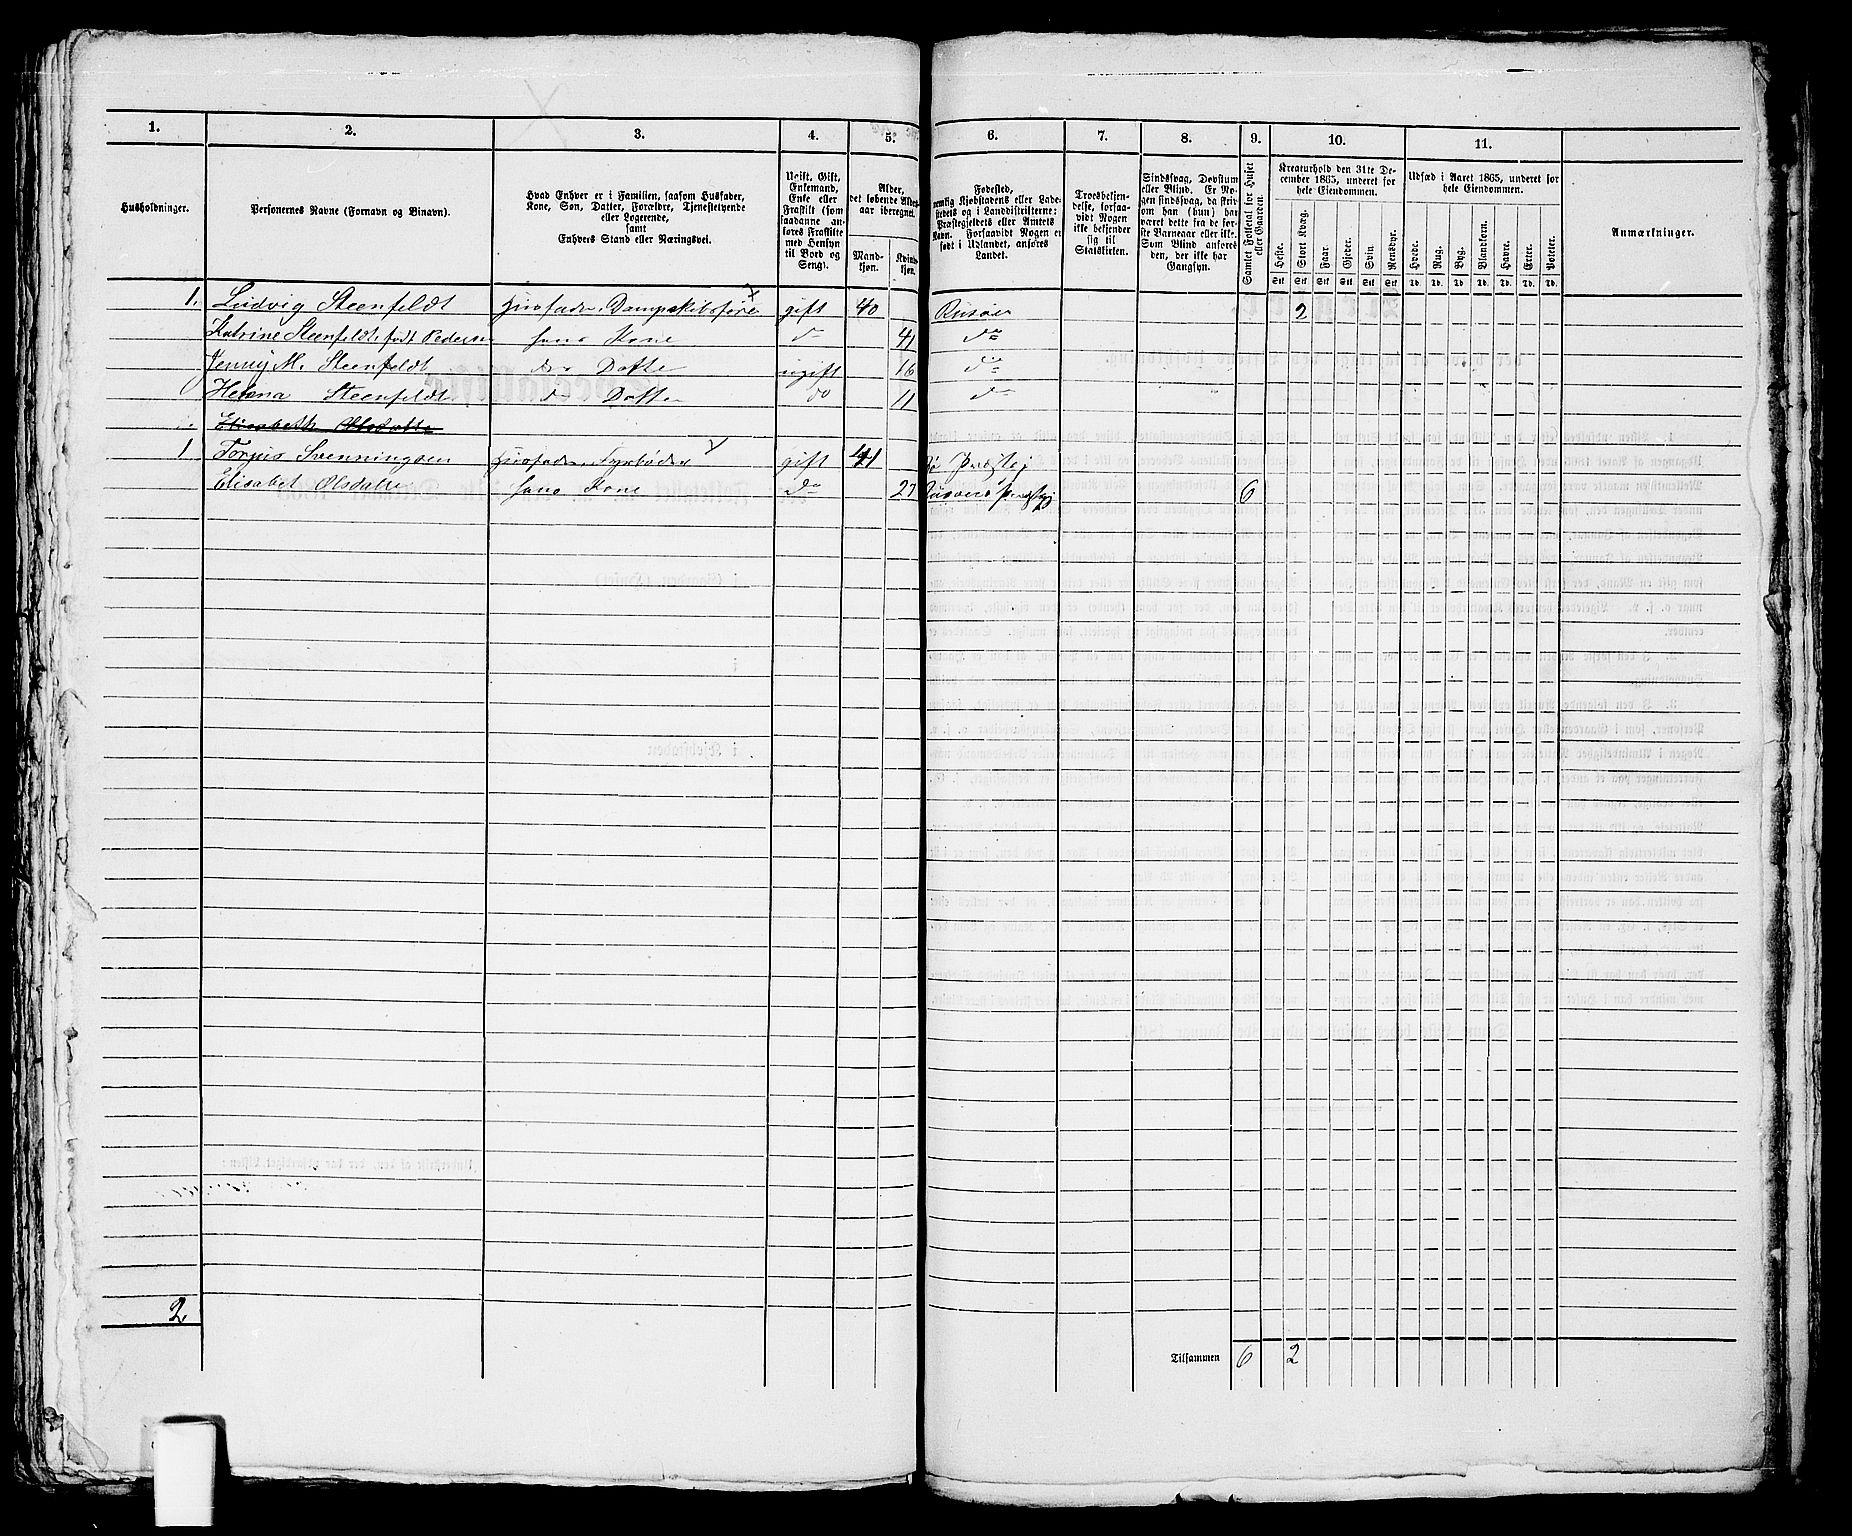 1. 2. 3. 4. 5. 6. 7. 8. 9. 10. 11.
Husholdninger.
Personernes Navne (Fornavn og Binavn).
Hvad Enhver er i Familien, saasom Husfader, Kone, Søn, Datter, Forældre, Tjenestetyende eller Logerende, samt Enhvers Stand eller Næringsvei.
Ugift, Gift, Enkemand, Enke eller Fraskilt (som saadanne anføres Fraskilte med Hensyn til Bord og Seng).
Alder, det løbende Alders-aar iberegnet.
Mand-kjøn. Kvind-kjøn.
Fødested, nemlig Kjøbstadens eller Ladestedets og i Landdistrikterne: Præstegjeldets eller Amtets Navn. Forsaavidt Nogen er født i Udlandet, anføres Landet.
Troesbekjendelse, forsaavidt Nogen ikke bekjender sig til Statskirken.
Sindssvag, Døvstum eller Blind. Er Nogen sindssvag, da skrives om han (hun) har været dette fra de første Barneaar eller ikke. Som Blind anføres den, der ikke har Gangsyn.
Samlet Folketal for Huset eller Gaarden.
Kreaturhold den 31te December 1865, underet for hele Eiendommen.
Heste. Stort Kvæg. Faar. Gjeder. Svin Rensdyr.
Stk Stk Stk Stk Stk Stk
Udsæd i Aaret 1865, underet for hele Eiendommen.
Hvede. Rug. Byg. Blandkorn. Havre. Erter. Poteter.
Td. Td. Td. Td. Td. Td. Td.
Anmærkninger.
1. Ludvig Steenfeldt Huusfader, Dampskibsfører gift 40 Risøer 2
Katrine Steenfeldt født Pedersen hans Kone do 41 do
Jenny M. Steenfeldt do Datter ugift 16 do
Helena Steenfeldt do Datter do 11 do
Elisabeth Olsdatter
1 Torjus Svenningsen Huusfader, Fyrbøder gift 41 Bø Præstegj
Elisabet Olsdatter hans Kone do 27 Risøers Præstegj 6
2
Tilsammen 6 2